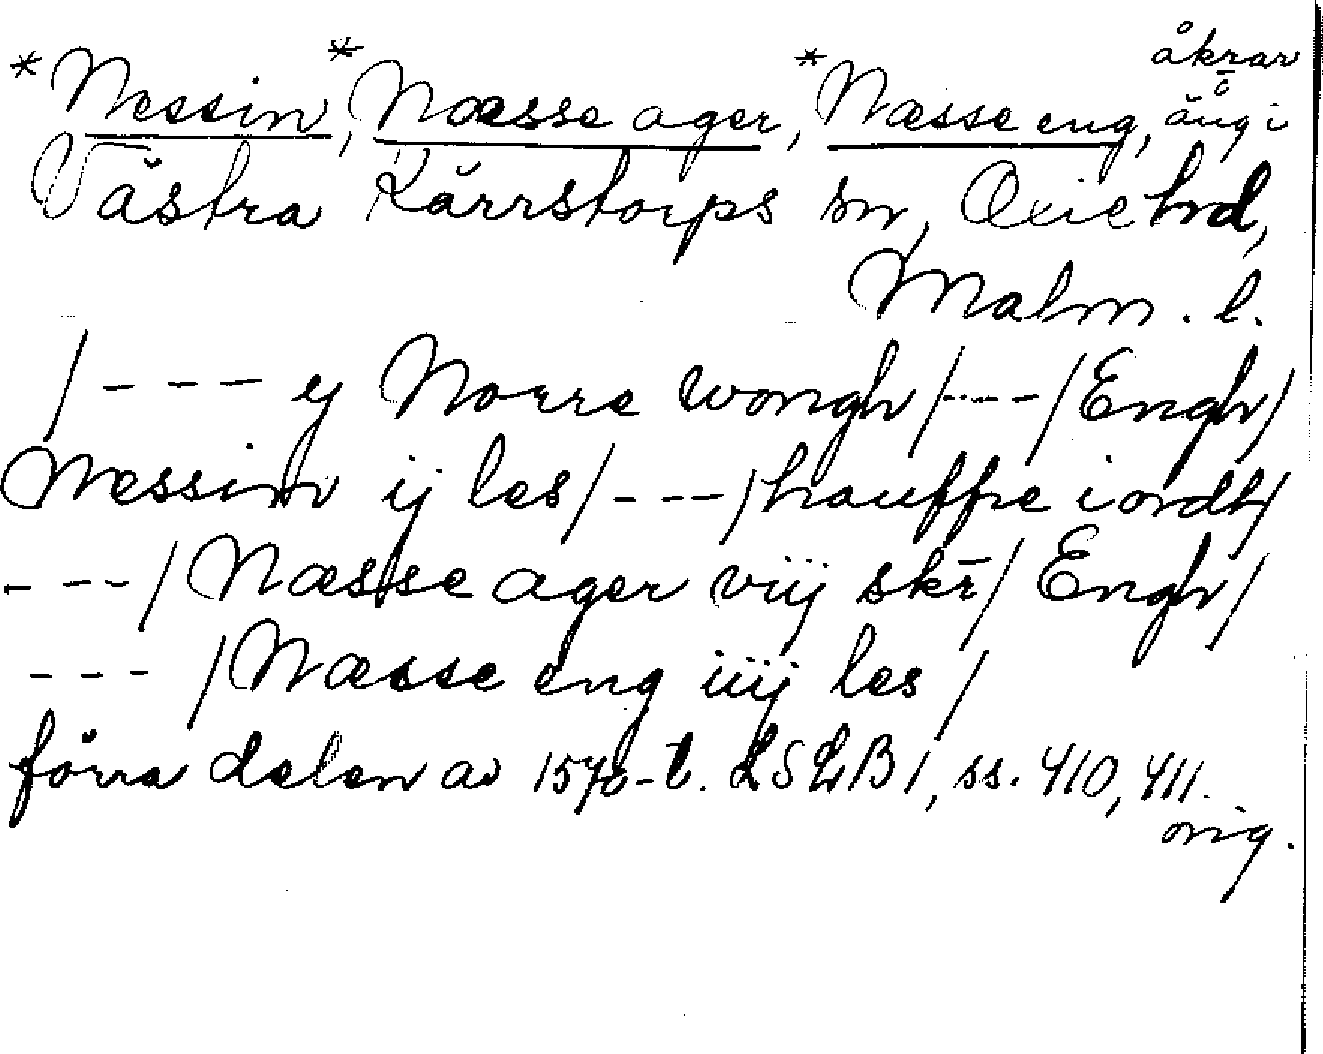 *Nessin, *Næsse ager, *Næsse eng, åkrar o äng i
Västra Kärrstorps sn, Oxie hd,
Malm. l.
/ - - - y Norre wongh / - - - / Engh /
Nessinn ij les / - - - / hauffre iordt /
- - - / Næsse ager viij skr̄ / Engh /
- - - / Næsse eng iiij les /
förra delen av 1570-t. LSLB 1, ss. 410, 411.
orig.